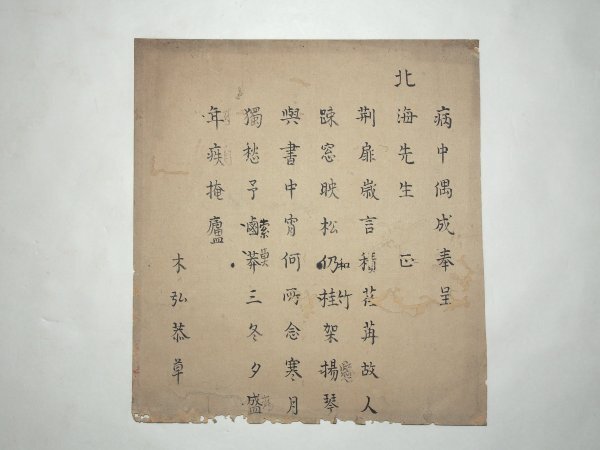 病中偶成奉呈
北海先生 正
荆扉嵗言積荏苒故人
疎窓映松仍桂架揚琴
和竹
懸
與書中宵何所念寒月
獨愁予鹵莽三冬夕盛
索莫
年疾掩廬
木弘恭草